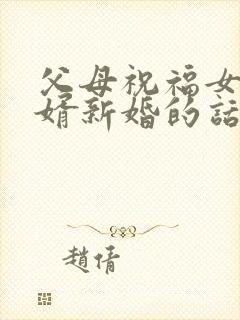 父母祝福女
婿新婚的話
趙倩